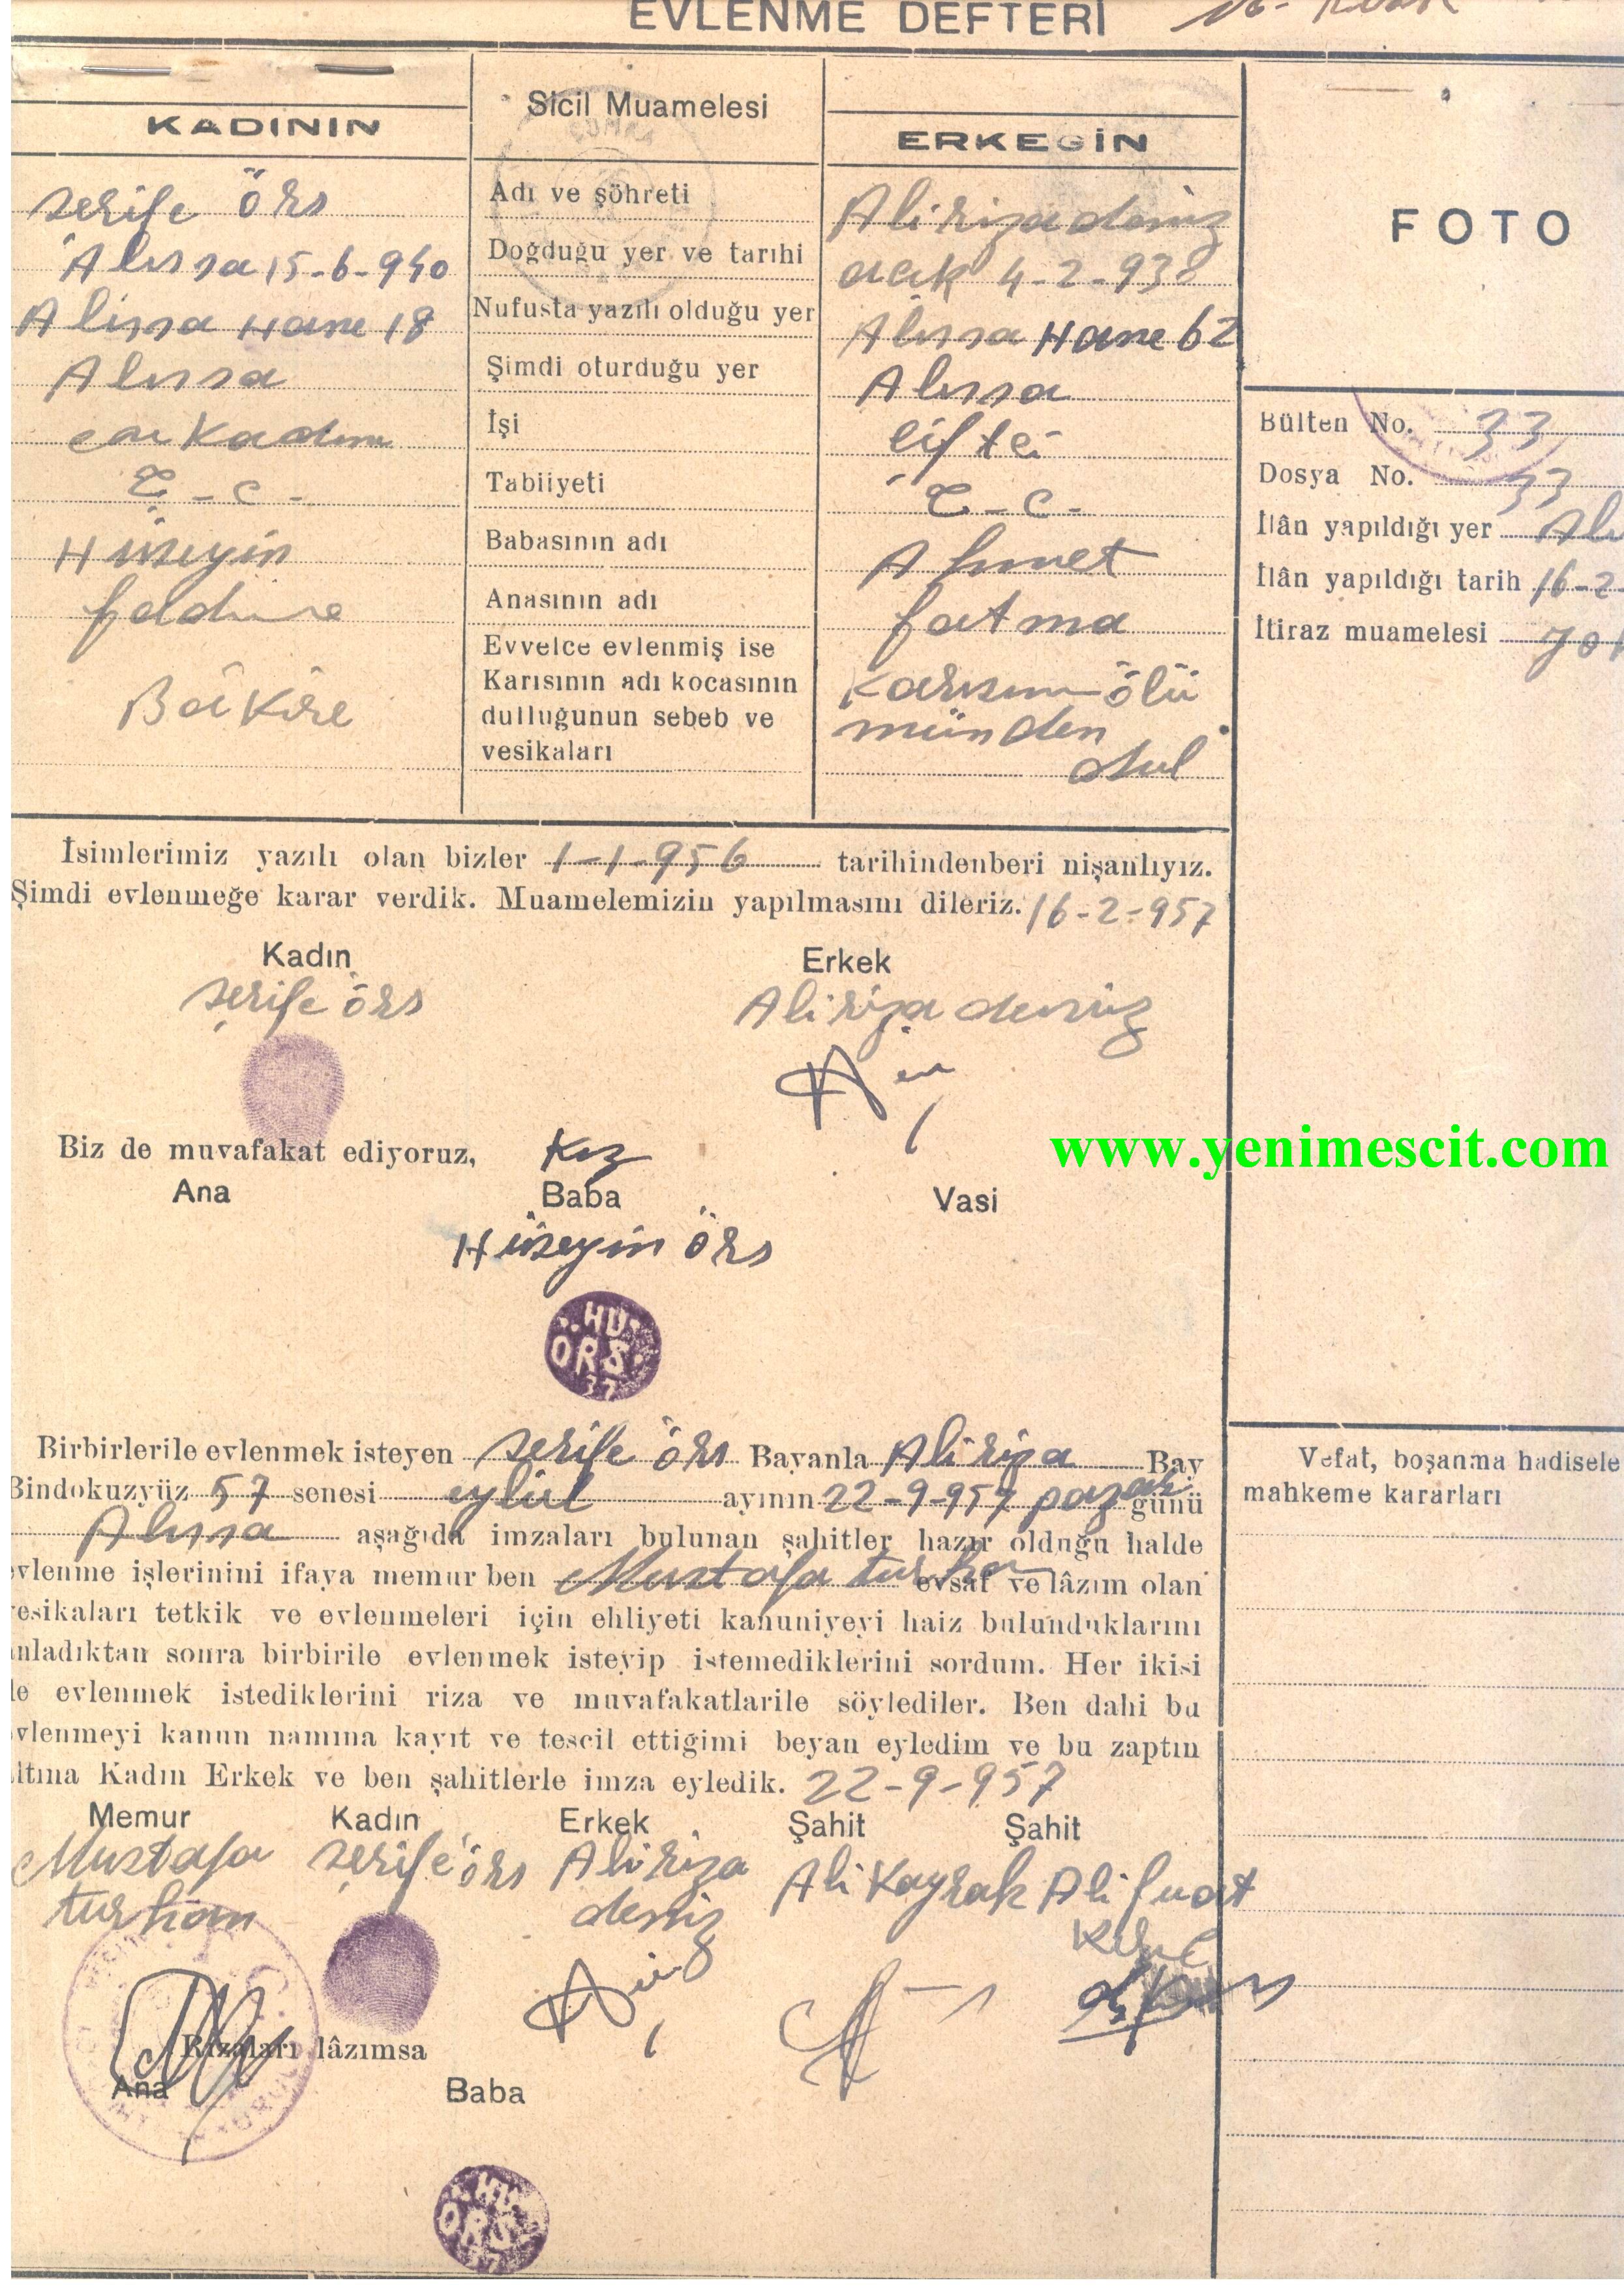 EVLENME DEFTERİ
KADININ
Sicil Muamelesi
ERKEĞİN
FOTO
şerife örs
Adı ve şöhreti
Ali riza deniz
Alıssa 15-6-940
Doğduğu yer ve tarihi
4-2-938
Alıssa Hane 18
Nufusta yazılı olduğu yer
Alıssa Hane 62
Alıssa
Şimdi oturduğu yer
Alıssa
ev Kadını
İşi
çiftçi
T-C-
Tabiiyeti
T-C-
Hüseyin
Babasının adı
Ahmet
Anasının adı
fatma
Bâkire
Evvelce evlenmiş ise
Karısının adı kocasının
dulluğunun sebeb ve
vesikaları
Karısının ölü
münden
dul
Bülten No. 33
Dosya No. 33
İlân yapıldığı yer Alı
İlân yapıldığı tarih 16-2-
İtiraz muamelesi yok
İsimlerimiz yazılı olan bizler 1-1-956 tarihindenberi nişanlıyız.
Şimdi evlenmeğe karar verdik. Muamelemizin yapılmasını dileriz. 16-2-957
Kadın Erkek
şerife örs Ali riza deniz
Biz de muvafakat ediyoruz, Kız
Ana Baba Vasi
www.yenimescit.com
Hüseyin örs
HU
ORS
37
Birbirlerile evlenmek isteyen şerife örs Bayanla Ali riza Bay
Bindokuzyüz 57 senesi eylül ayının 22-9-957 pazar günü
Alıssa aşağıda imzaları bulunan şahitler hazır olduğu halde
vlenme işlerinini ifaya memur ben Mustafa turhan evsaf ve lâzım olan
esikaları tetkik ve evlenmeleri için ehliyeti kanuniyeyi haiz bulunduklarını
nladıktan sonra birbirile evlenmek isteyip istemediklerini sordum. Her ikisi
e evlenmek istediklerini riza ve muvafakatlarile söylediler. Ben dahi bu
vlenmeyi kanun namına kayıt ve tescil ettiğimi beyan eyledim ve bu zaptın
ltına Kadın Erkek ve ben şahitlerle imza eyledik. 22-9-957
Vefat, boşanma hadisele
mahkeme kararları
Memur Kadın Erkek Şahit Şahit
Mustafa şerife örs Ali riza Ali Kayrak Ali fuat
turhan deniz
Rızaları lâzımsa
Ana Baba
HU
ORS
37